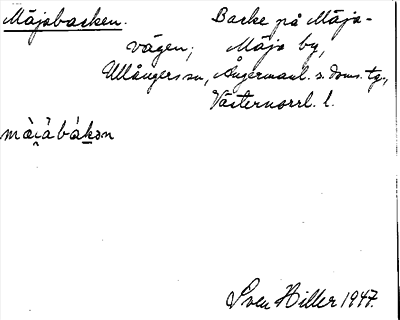 Mäjabacken. Backe på Mäja-
vägen; Mäja by,
Ullångers sn, Ångermanl. s. doms. tg.,
Västernorrl. l.
Sven Hiller 1947.